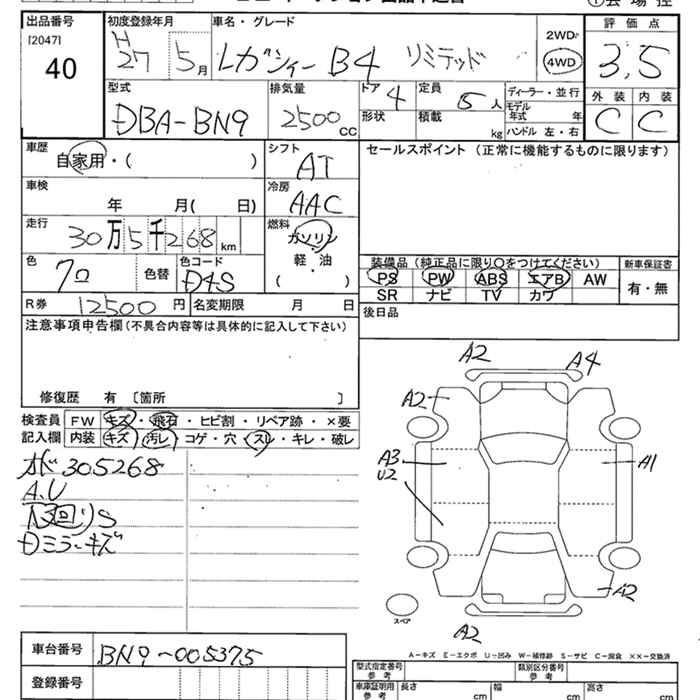 出品番号 初度登録年月 車名・グレード 評価点
[2047] 40 H27 5月 レガシィー B4 リミテッド 2WD 4WD 3.5
型式 排気量 ドア 4 定員 5人 ディーラー・並行 外装 内装
DBA-BN9 2500cc 形状 積載 kg モデル年式 年 C C
ハンドル 左・右
車歴 シフト セールスポイント (正常に機能するものに限ります)
自家用・( ) AT
車検 冷房
年 月( 日) AAC
走行 燃料
30万5千268km ガソリン
軽・油
( )
色 色替 色コード 装備品 (純正品に限り○をつけてください) 新車保証書
クロ D4S PS PW ABS エアB AW 有・無
R券 12500円 名変期限 月 日 SR ナビ TV カワ
注意事項申告欄(不具合内容等は具体的に記入して下さい) 後日品
修復歴 有 〔箇所 〕
検査員 FW キズ・飛石・ヒビ割・リペア跡・×要
記入欄 内装 キズ・汚レ・コゲ・穴・スレ・キレ・破レ
305268
A.U
S
ミラーキズ
A2 A4
A2
A3 A1
U2
A2
スペア
A2
A-キズ E-エクボ U-凹み W-補修跡 S-サビ C-腐食 ××-交換済
車台番号 BN9-005375
登録番号
型式指定番号 参考 類別区分番号 参考
車庫証明用 参考 長さ cm 幅 cm 高さ cm